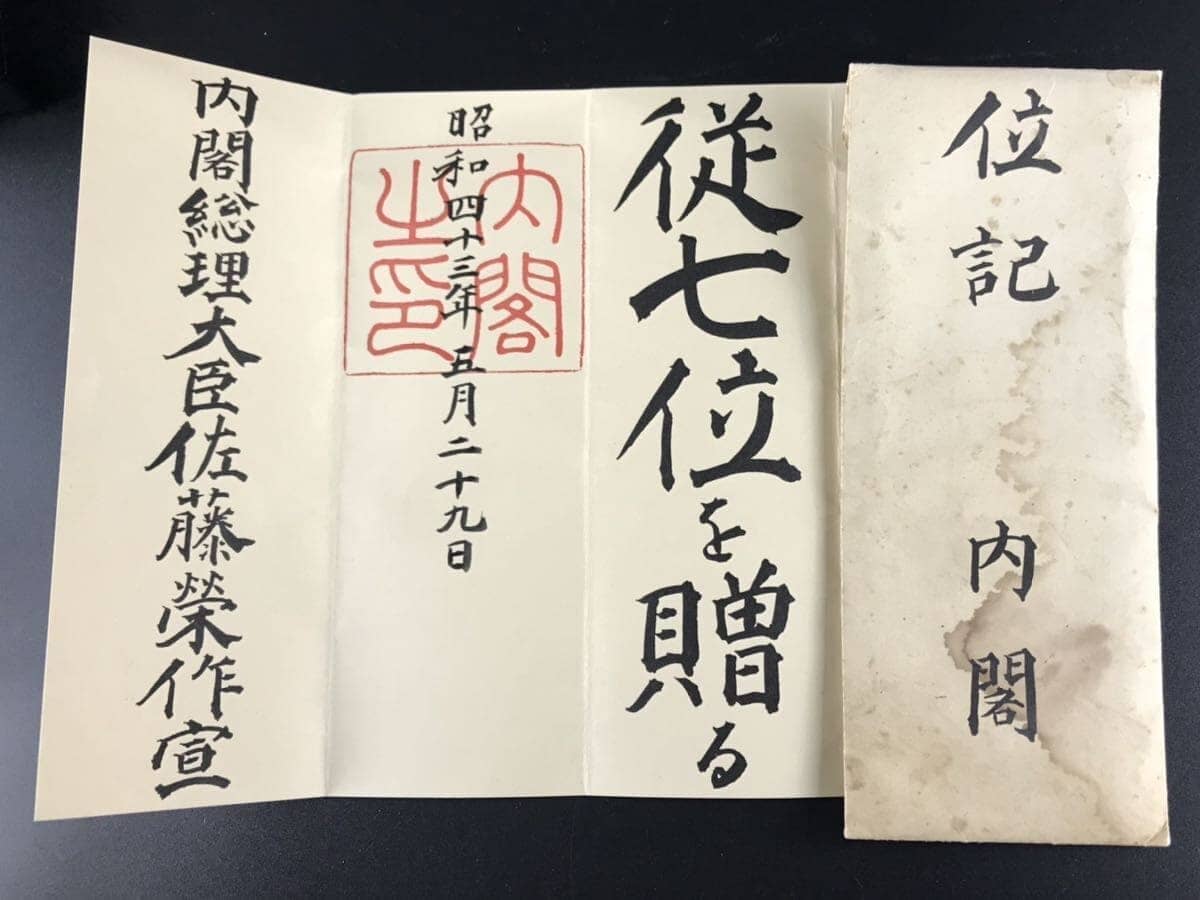 位記
内閣
従七位を贈る
昭和四十三年五月二十九日
内閣
之印
内閣総理大臣佐藤榮作宣